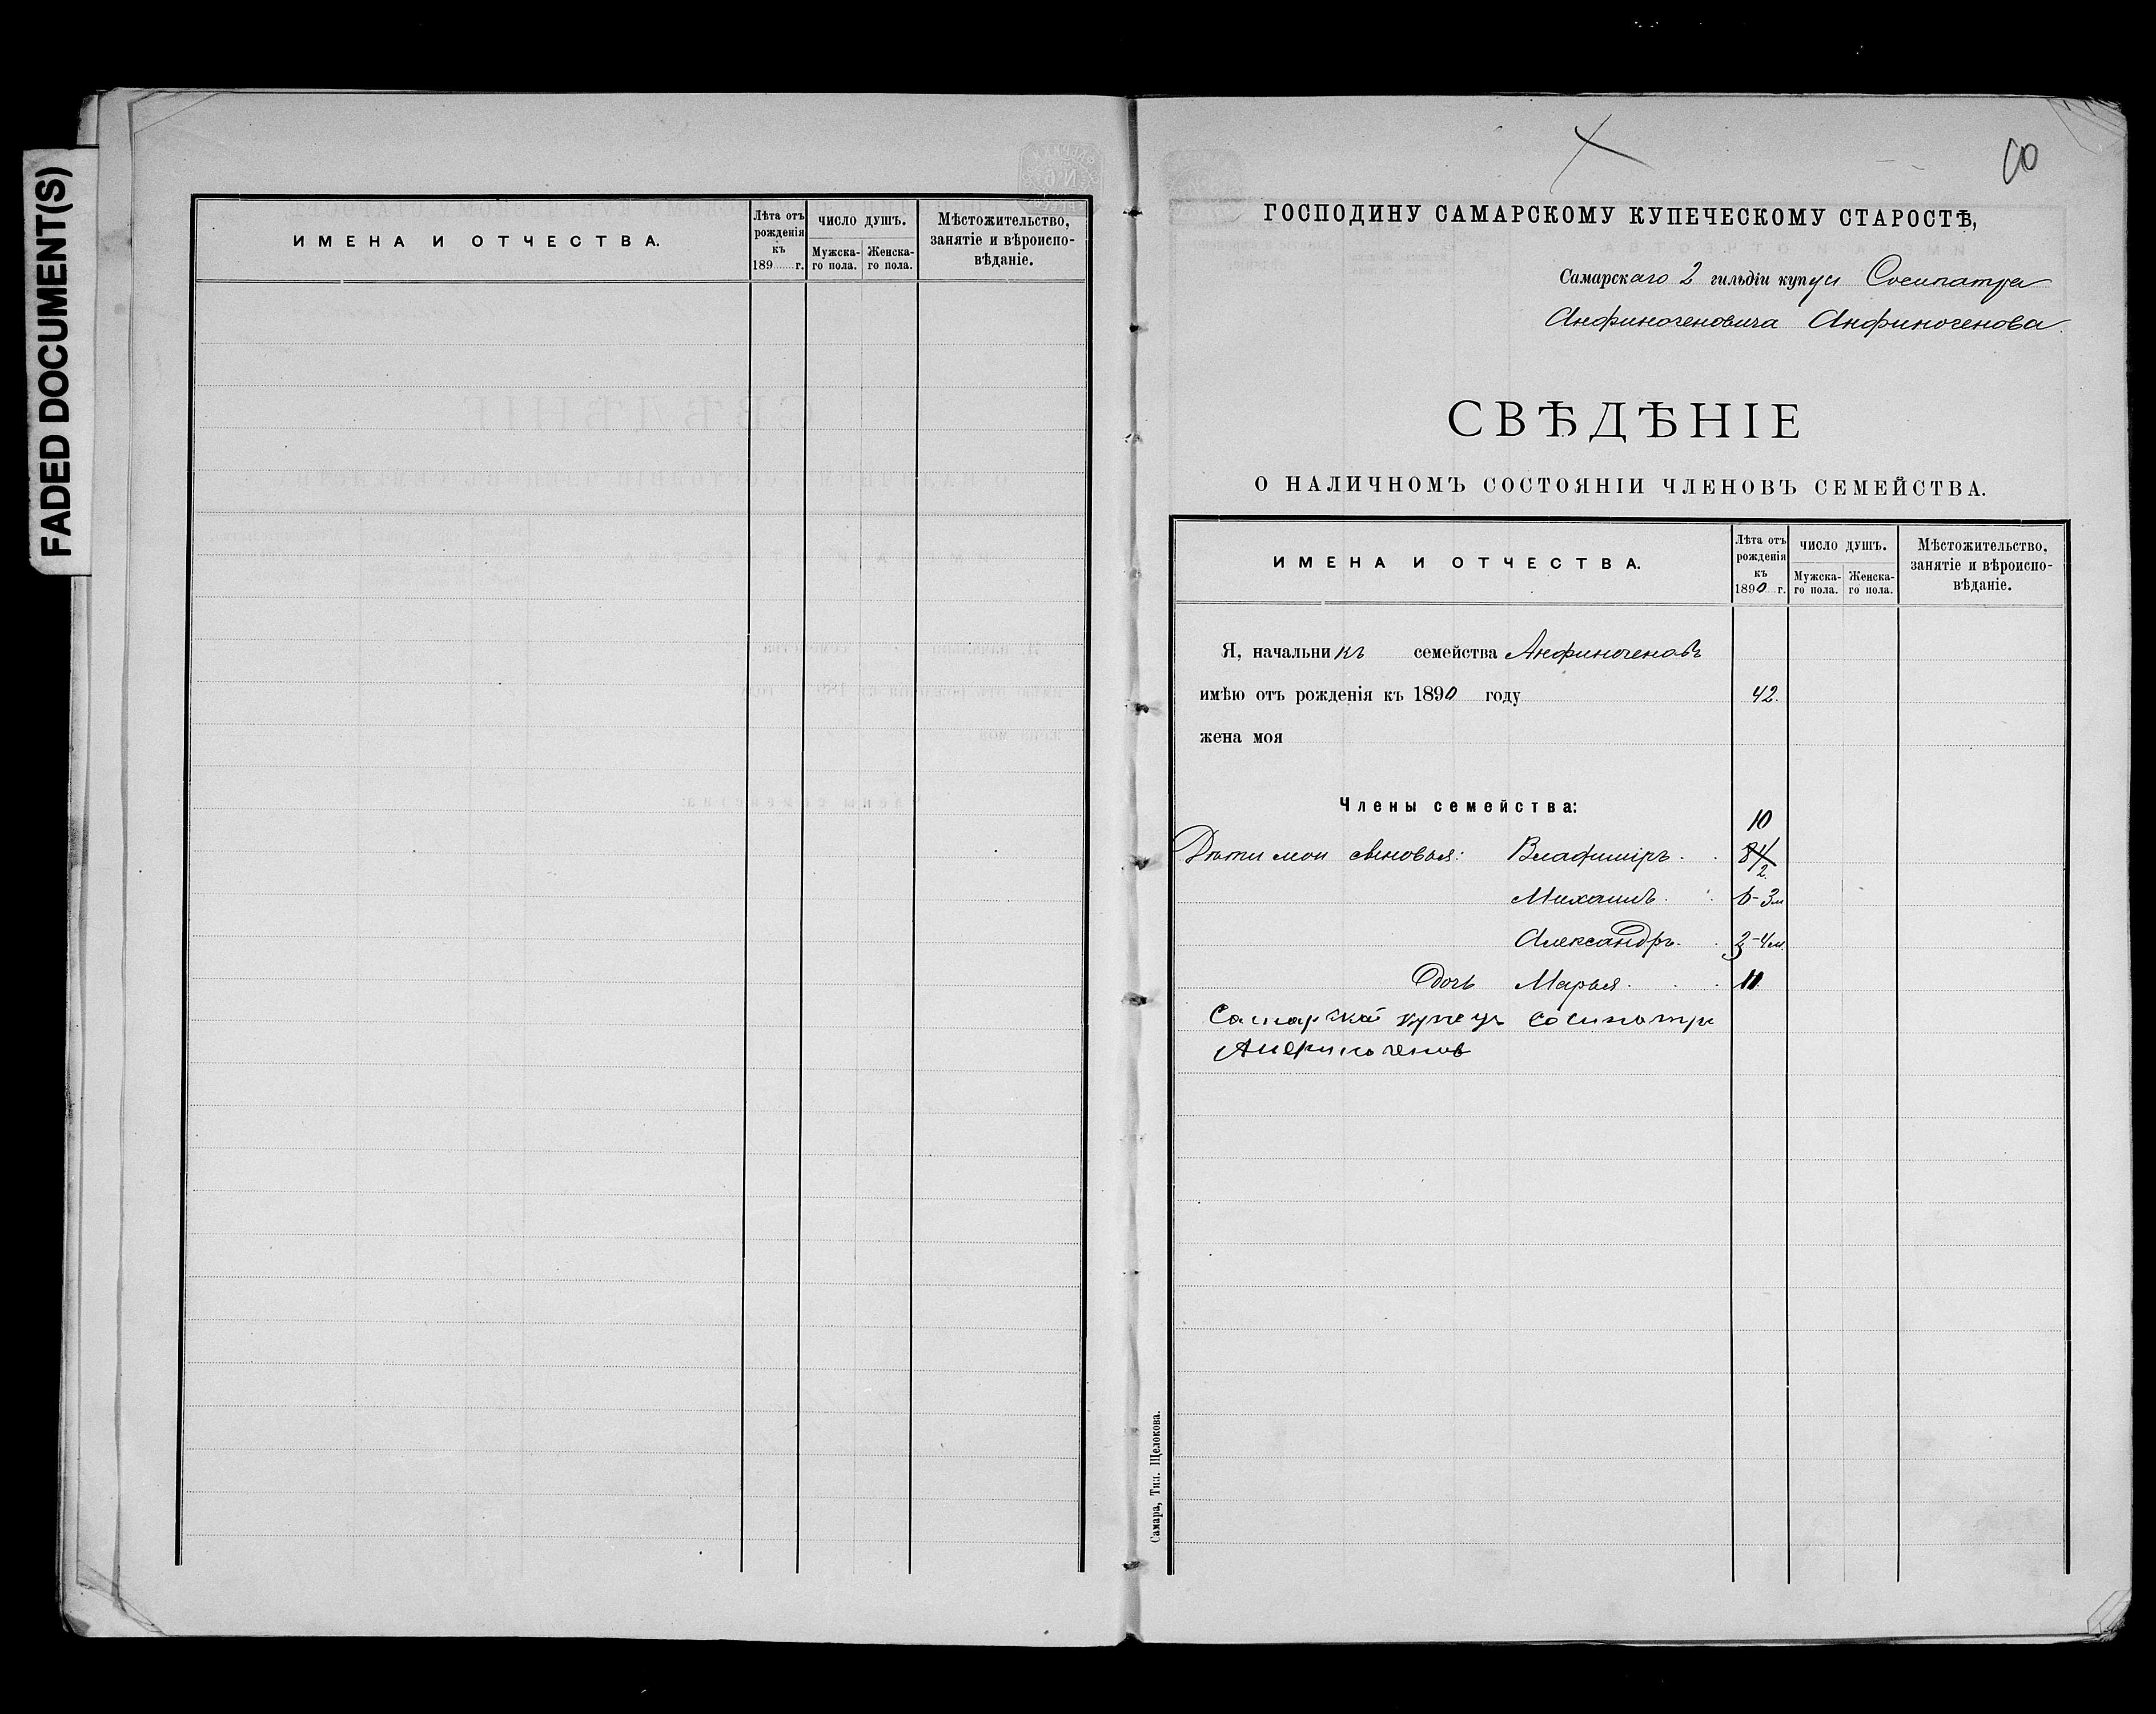 FADED DOCUMENT(S)
ИМЕНА И ОТЧЕСТВА.
Лѣта отъ рожденія къ 189 г.
ЧИСЛО ДУШЪ.
Мужска-го пола.
Женска-го пола.
Мѣстожительство, занятіе и вѣроиспо-вѣданіе.
60
ГОСПОДИНУ САМАРСКОМУ КУПЕЧЕСКОМУ СТАРОСТѢ,
Самарскаго 2 гильдіи купца Сосипатра
Анфиногеновича Анфиногенова.
СВѢДѢНІЕ
О НАЛИЧНОМЪ СОСТОЯНІИ ЧЛЕНОВЪ СЕМЕЙСТВА.
ИМЕНА И ОТЧЕСТВА.
Лѣта отъ рожденія къ 1890 г.
ЧИСЛО ДУШЪ.
Мужска-го пола.
Женска-го пола.
Мѣстожительство, занятіе и вѣроиспо-вѣданіе.
Я, начальникъ семейства Анфиногеновъ
имѣю отъ рожденія къ 1890 году 42.
жена моя
Члены семейства:
10
Дѣти мои сыновья: Владиміръ. 8 1/2
Михаилъ. 6-3м
Александръ. 3-4м.
Дочь Марья. 11
Самарскай купецъ Сосипатръ
Анфиногенов
Самара, Тип. Щелокова.